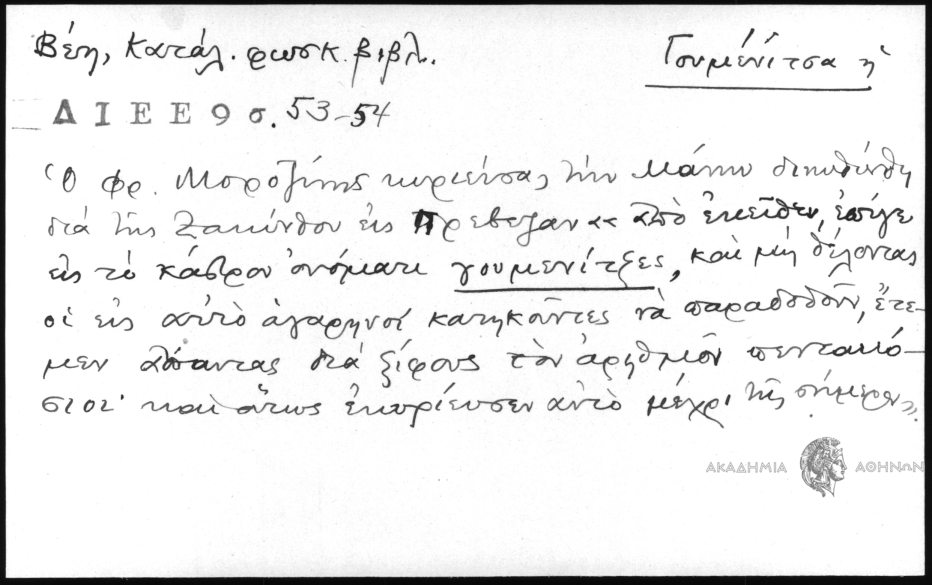 Βέη, Κατάλ. ρωσκ. βιβλ.
Γουμένιτσα ἡ
ΔΙΕΕ 9 σ. 53-54
Ὁ Φρ. Μοροζίνης κυριεύσας τὴν Μάνην διηυθύνθη
διὰ τῆς Ζακύνθου εἰς Πρέβεζαν «ἀπὸ ἐκεῖθεν, ἐπῆγε
εἰς τὸ κάστρον ὀνόματι γουμενίτζες, καὶ μὴ θέλοντας
οἱ εἰς αὐτὸ ἀγαρηνοὶ κατηκοῦντες νὰ παραδοθοῦν, ἔτε-
μεν ἅπαντας διὰ ξίφους τὸν ἀριθμὸν πεντακό-
σιοι· καὶ οὕτως ἐκυρίευσεν αὐτὸ μέχρι τῆς σήμερον».
ΑΚΑΔΗΜΙΑ ΑΘΗΝΩΝ